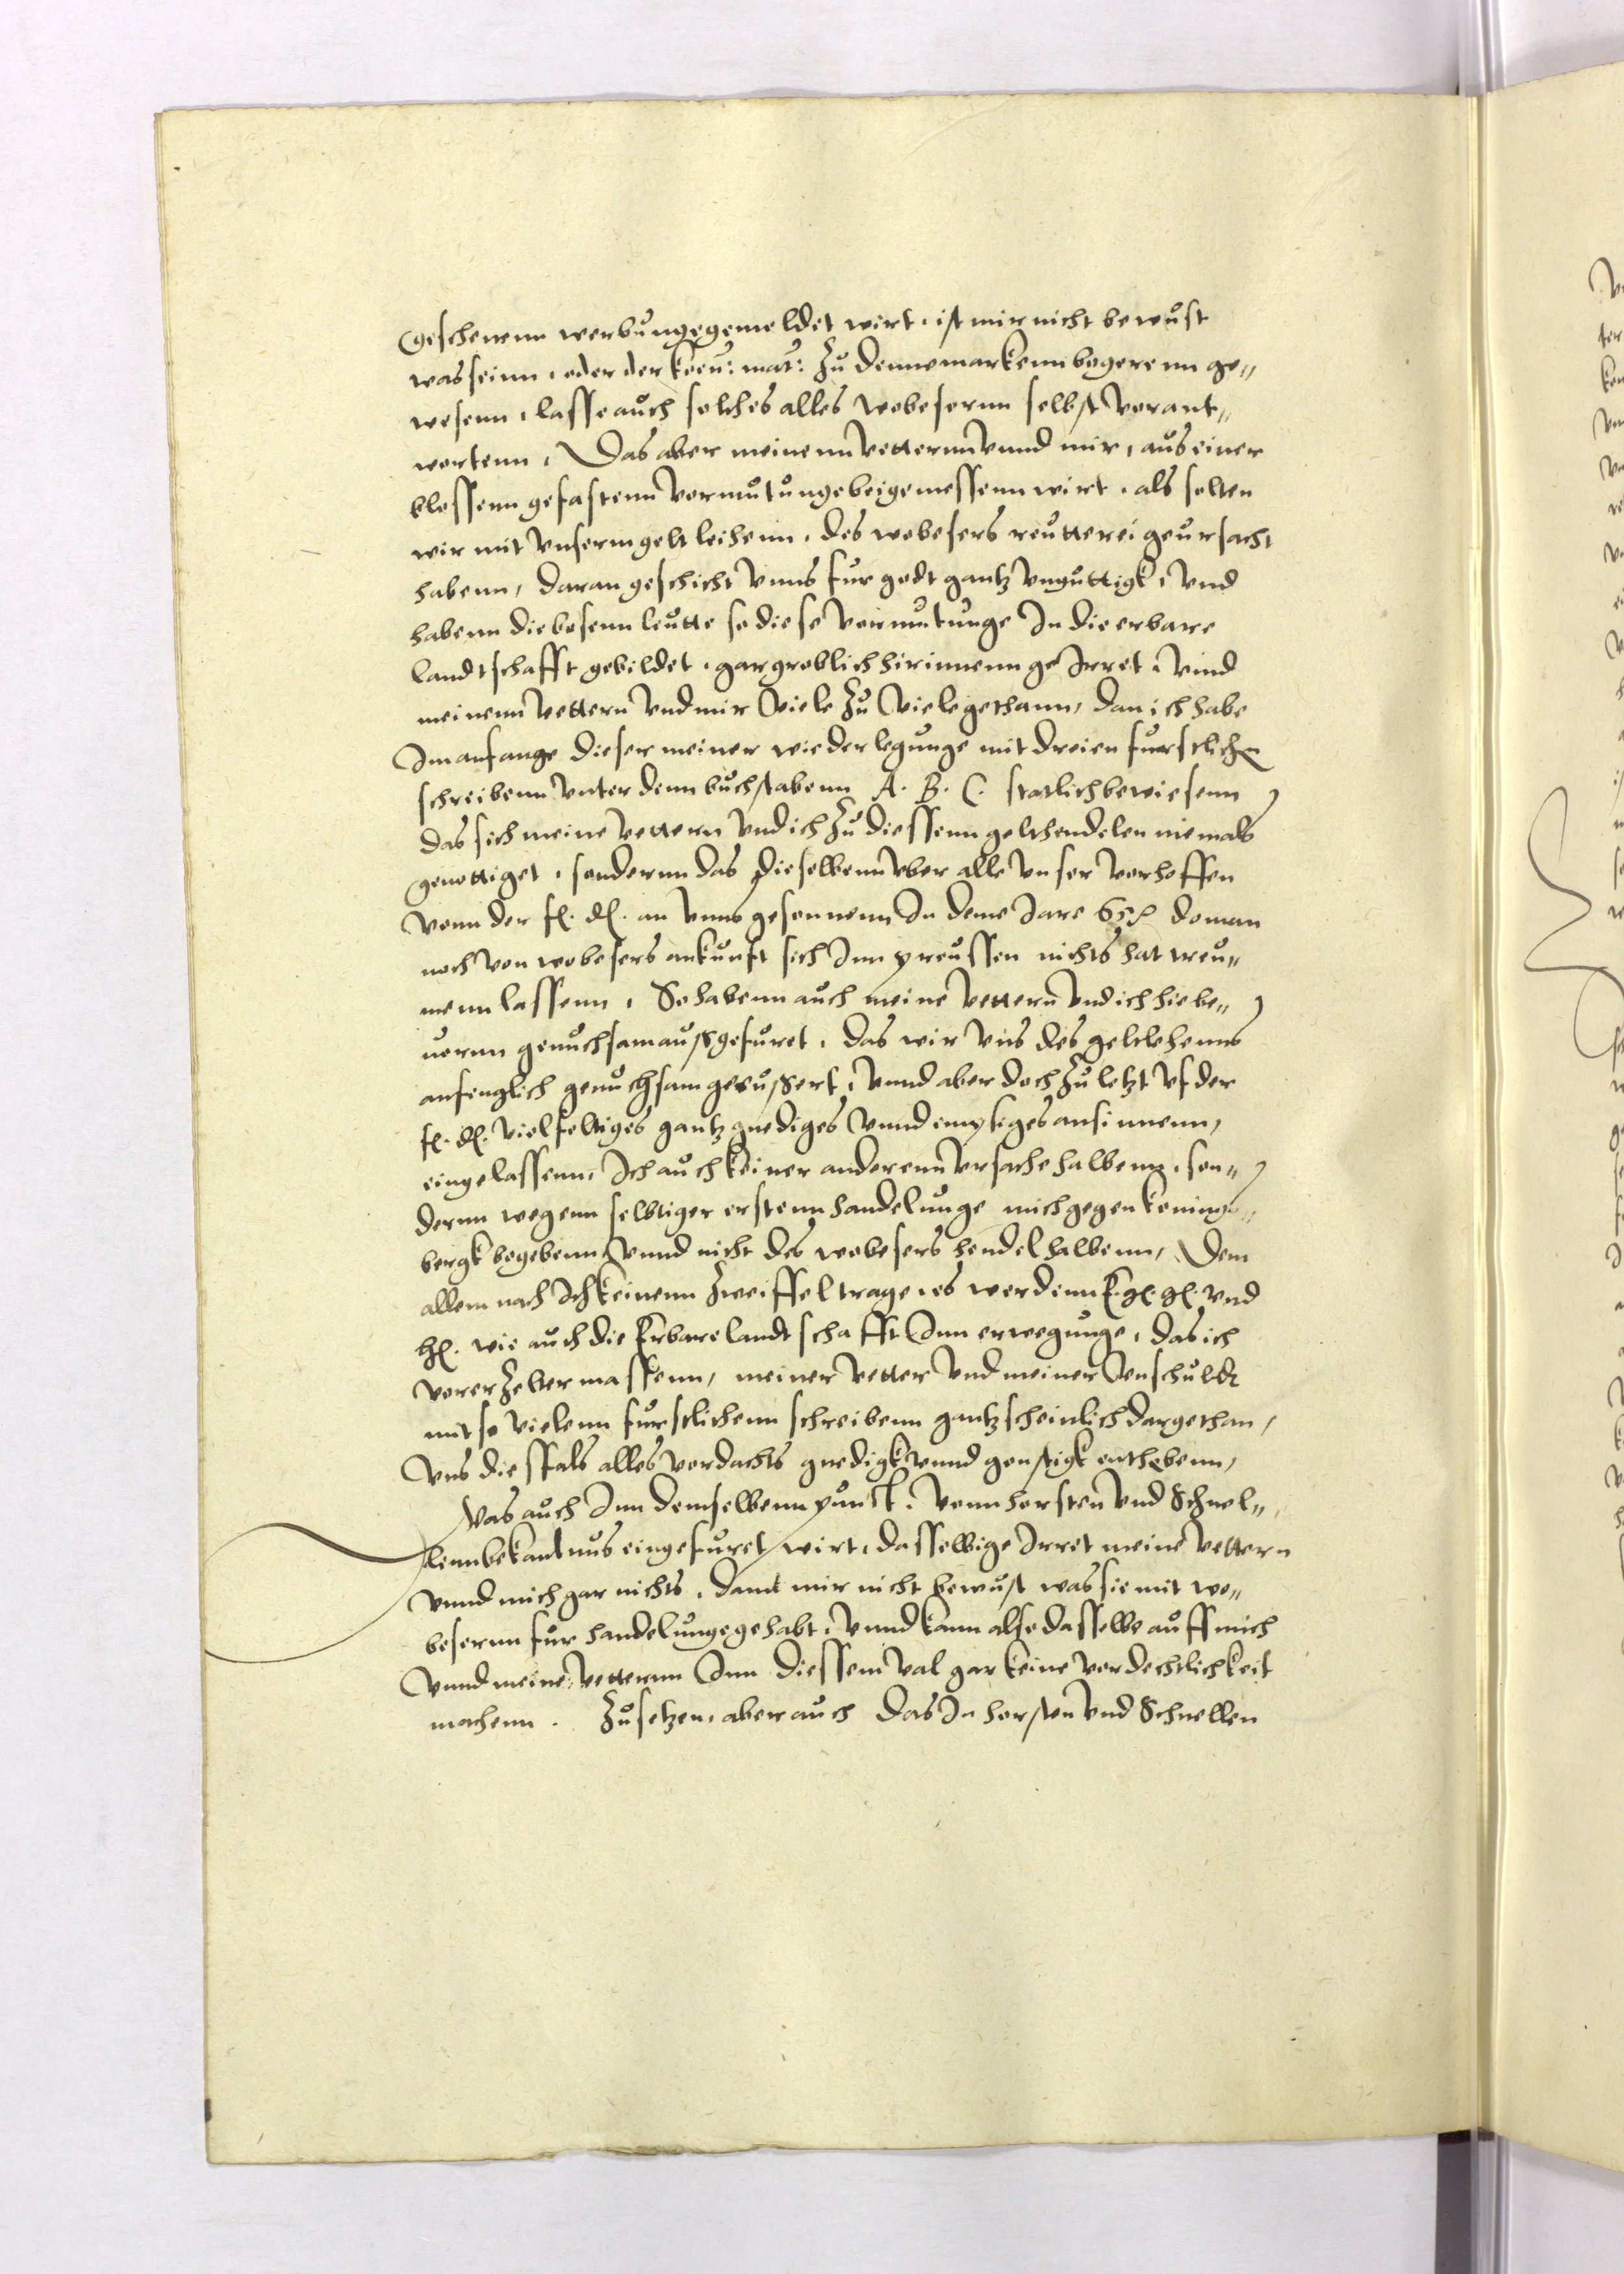 geschenenn werbunge gemeldet wirt, ist mir nicht bewust
was seinn, oder der koeu: mat: zu dennemarkenn begerenn ge„
wesenn, lasse auch solches alles wobesernn selbst verant„
wortenn, Das aber meinenn vetternn vnnd mir, aus einer
blossenn gefastenn vormutunge beigemessenn wirt, als solten
wir mit vnserm gelt leihenn, des wobesers reutterei geursacht
habenn, daran geschicht vnns fur godt gantz vnguttigk, vnd
habenn die bosenn leutte so diese vermutunge In die erbare
landtschafft gebildet, gar groblich hirinnenn geIrret, vnnd
meinenn vettern vnd mir viele zu viele gethann, dan ich habe
Im anfange dieser meiner wiederlegunge mit dreien furstlichen
schreibenn vnter denn buchstabenn A. B. C. statlich bewiesenn
das sich meine vettern vnd ich zu diessenn gelthendelen niemals
genottiget, sondernn das dieselbenn vber alle vnser verhoffen
vonn der f. d. an vnns gesonnenn In deme Jare 62 do man
noch von wobesers ankunft sich Inn preussen nichts hat treu„
menn lassenn, So habenn auch meine vettern vnd ich hiebe„
uornn genuchsam aussgefuret, das wir vns des geltlehenns
anfenglich genuchsam geeussert, vnnd aber doch zu letzt vf der
f. d. vielfeltiges gantz gnediges vnnd emsiges ansinnenn,
eingelassenn, Ich auch keiner anderenn vrsache halbenn, son„
dernn wegenn selbtiger erstenn handelunge mich gegen konings„
bergk begebenn vnnd nicht des wobesers hendel halbenn, Dem
allem nach Ich keinenn zweiffel trage, es werdenn E. g. g. vnd
h. wie auch die Erbare landtschafft Inn erwegunge, das ich
vorerzelter massenn, meiner vetter vnd meiner vnschuldt
mit so vielenn furstlichenn schreibenn gantz scheinlich dargethan,
vns diessfals alles verdachts gnedigk vnnd gonstigk enthebenn,
Was auch Inn demselbenn punct, vonn horsten vnd Schnel„
lenn bekantnus eingefuret wirt, dasselbige Irret meine vettern
vnnd mich gar nichts, dann mir nicht bewust was sie mit wo„
besernn fur handelunge gehabt, vnnd kann also dasselbe auff mich
vnnd meine vetternn Inn diessem val gar keine verdechtlichkeit
machenn. Zusetzen, aber auch das In horsten vnd Schnellen